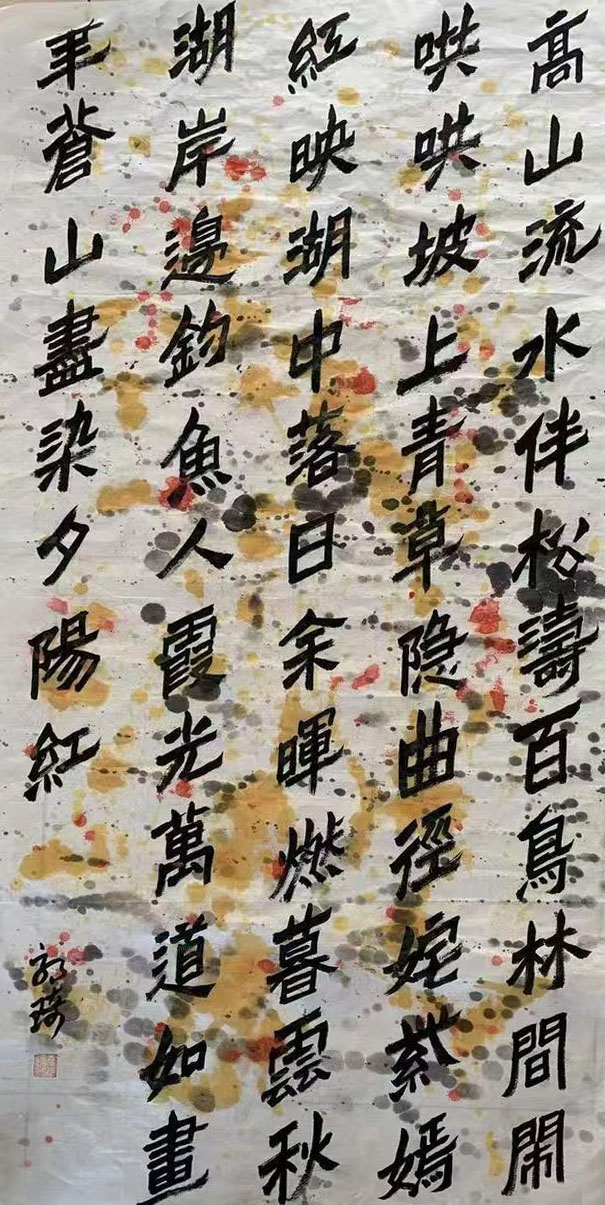 髙山流水伴松濤百鳥林間閙
哄哄坡上青草隐曲徑姹紫嫣
紅映湖中落日余暉燃暮雲秋
湖岸邊釣魚人霞光萬道如畫
蒼山盡染夕陽紅